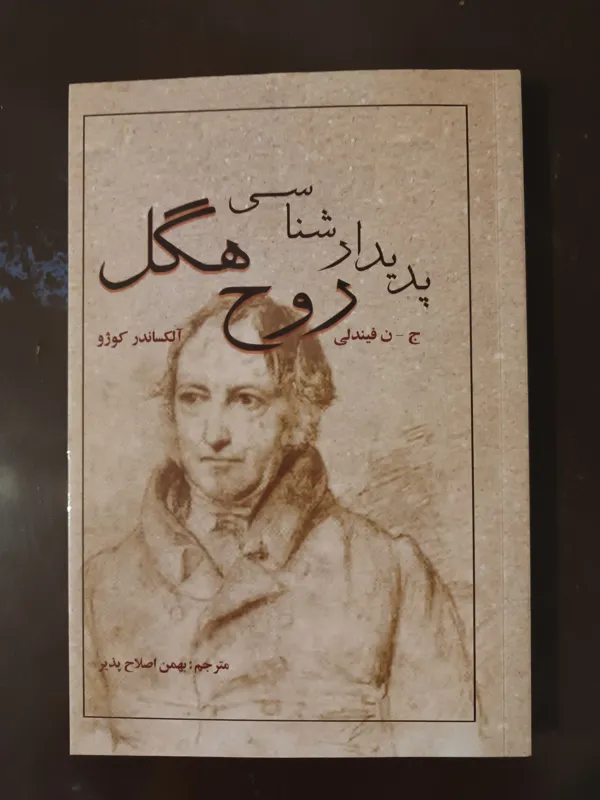 پدیدارشناسی
روح هگل
ج - ن فیندلی
آلکساندر کوژو
مترجم: بهمن اصلاح پذیر